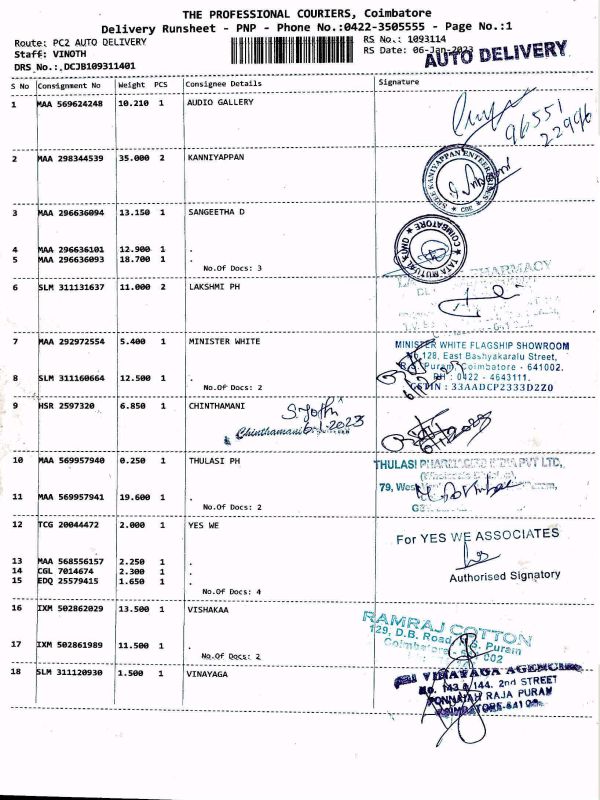 THE PROFESSIONAL COURIERS, Coimbatore
Delivery Runsheet - PNP - Phone No.:0422-3505555 - Page No.:1
Route: PC2 AUTO DELIVERY
RS No.: 1093114
Staff: VINOTH
RS Date: 06-Jan-2023
AUTO DELIVERY
DRS No.:,DCJB109311401
S No Consignment No Weight PCS Consignee Details Signature
1 MAA 569624248 10.210 1 AUDIO GALLERY
96551
22996
2 MAA 298344539 35.000 2 KANNIYAPPAN
3 MAA 296636094 13.150 1 SANGEETHA D
COIMBATORE
4 MAA 296636101 12.900 1 .
5 MAA 296636093 18.700 1 .
No.Of Docs: 3
PHARMACY
6 SLM 311131637 11.000 2 LAKSHMI PH
7 MAA 292972554 5.400 1 MINISTER WHITE
MINISTER WHITE FLAGSHIP SHOWROOM
No.128, East Bashyakaralu Street,
R.S. Puram, Coimbatore - 641002.
PH : 0422 - 4643111.
GSTIN : 33AADCP2333D2Z0
8 SLM 311160664 12.500 1 .
No.Of Docs: 2
9 HSR 2597320 6.850 1 CHINTHAMANI
6-1-2023
Chinthamani
6/1/2023
10 MAA 569957940 0.250 1 THULASI PH
THULASI PHARMACIES INDIA PVT LTD,
79, West
11 MAA 569957941 19.600 1 .
No.Of Docs: 2
12 TCG 20044472 2.000 1 YES WE
For YES WE ASSOCIATES
Authorised Signatory
13 MAA 568556157 2.250 1 .
14 CGL 7014674 2.300 1 .
15 EDQ 25579415 1.650 1 .
No.Of Docs: 4
16 IXM 502862029 13.500 1 VISHAKAA
RAMRAJ COTTON
129, D.B. Road, R.S. Puram
Coimbatore - 641 002
17 IXM 502861989 11.500 1 .
No.Of Docs: 2
18 SLM 311120930 1.500 1 VINAYAGA
SRI VINAYAGA AGENCIES
No. 143 & 144, 2nd STREET
PONNAIAH RAJA PURAM
COIMBATORE-641 001